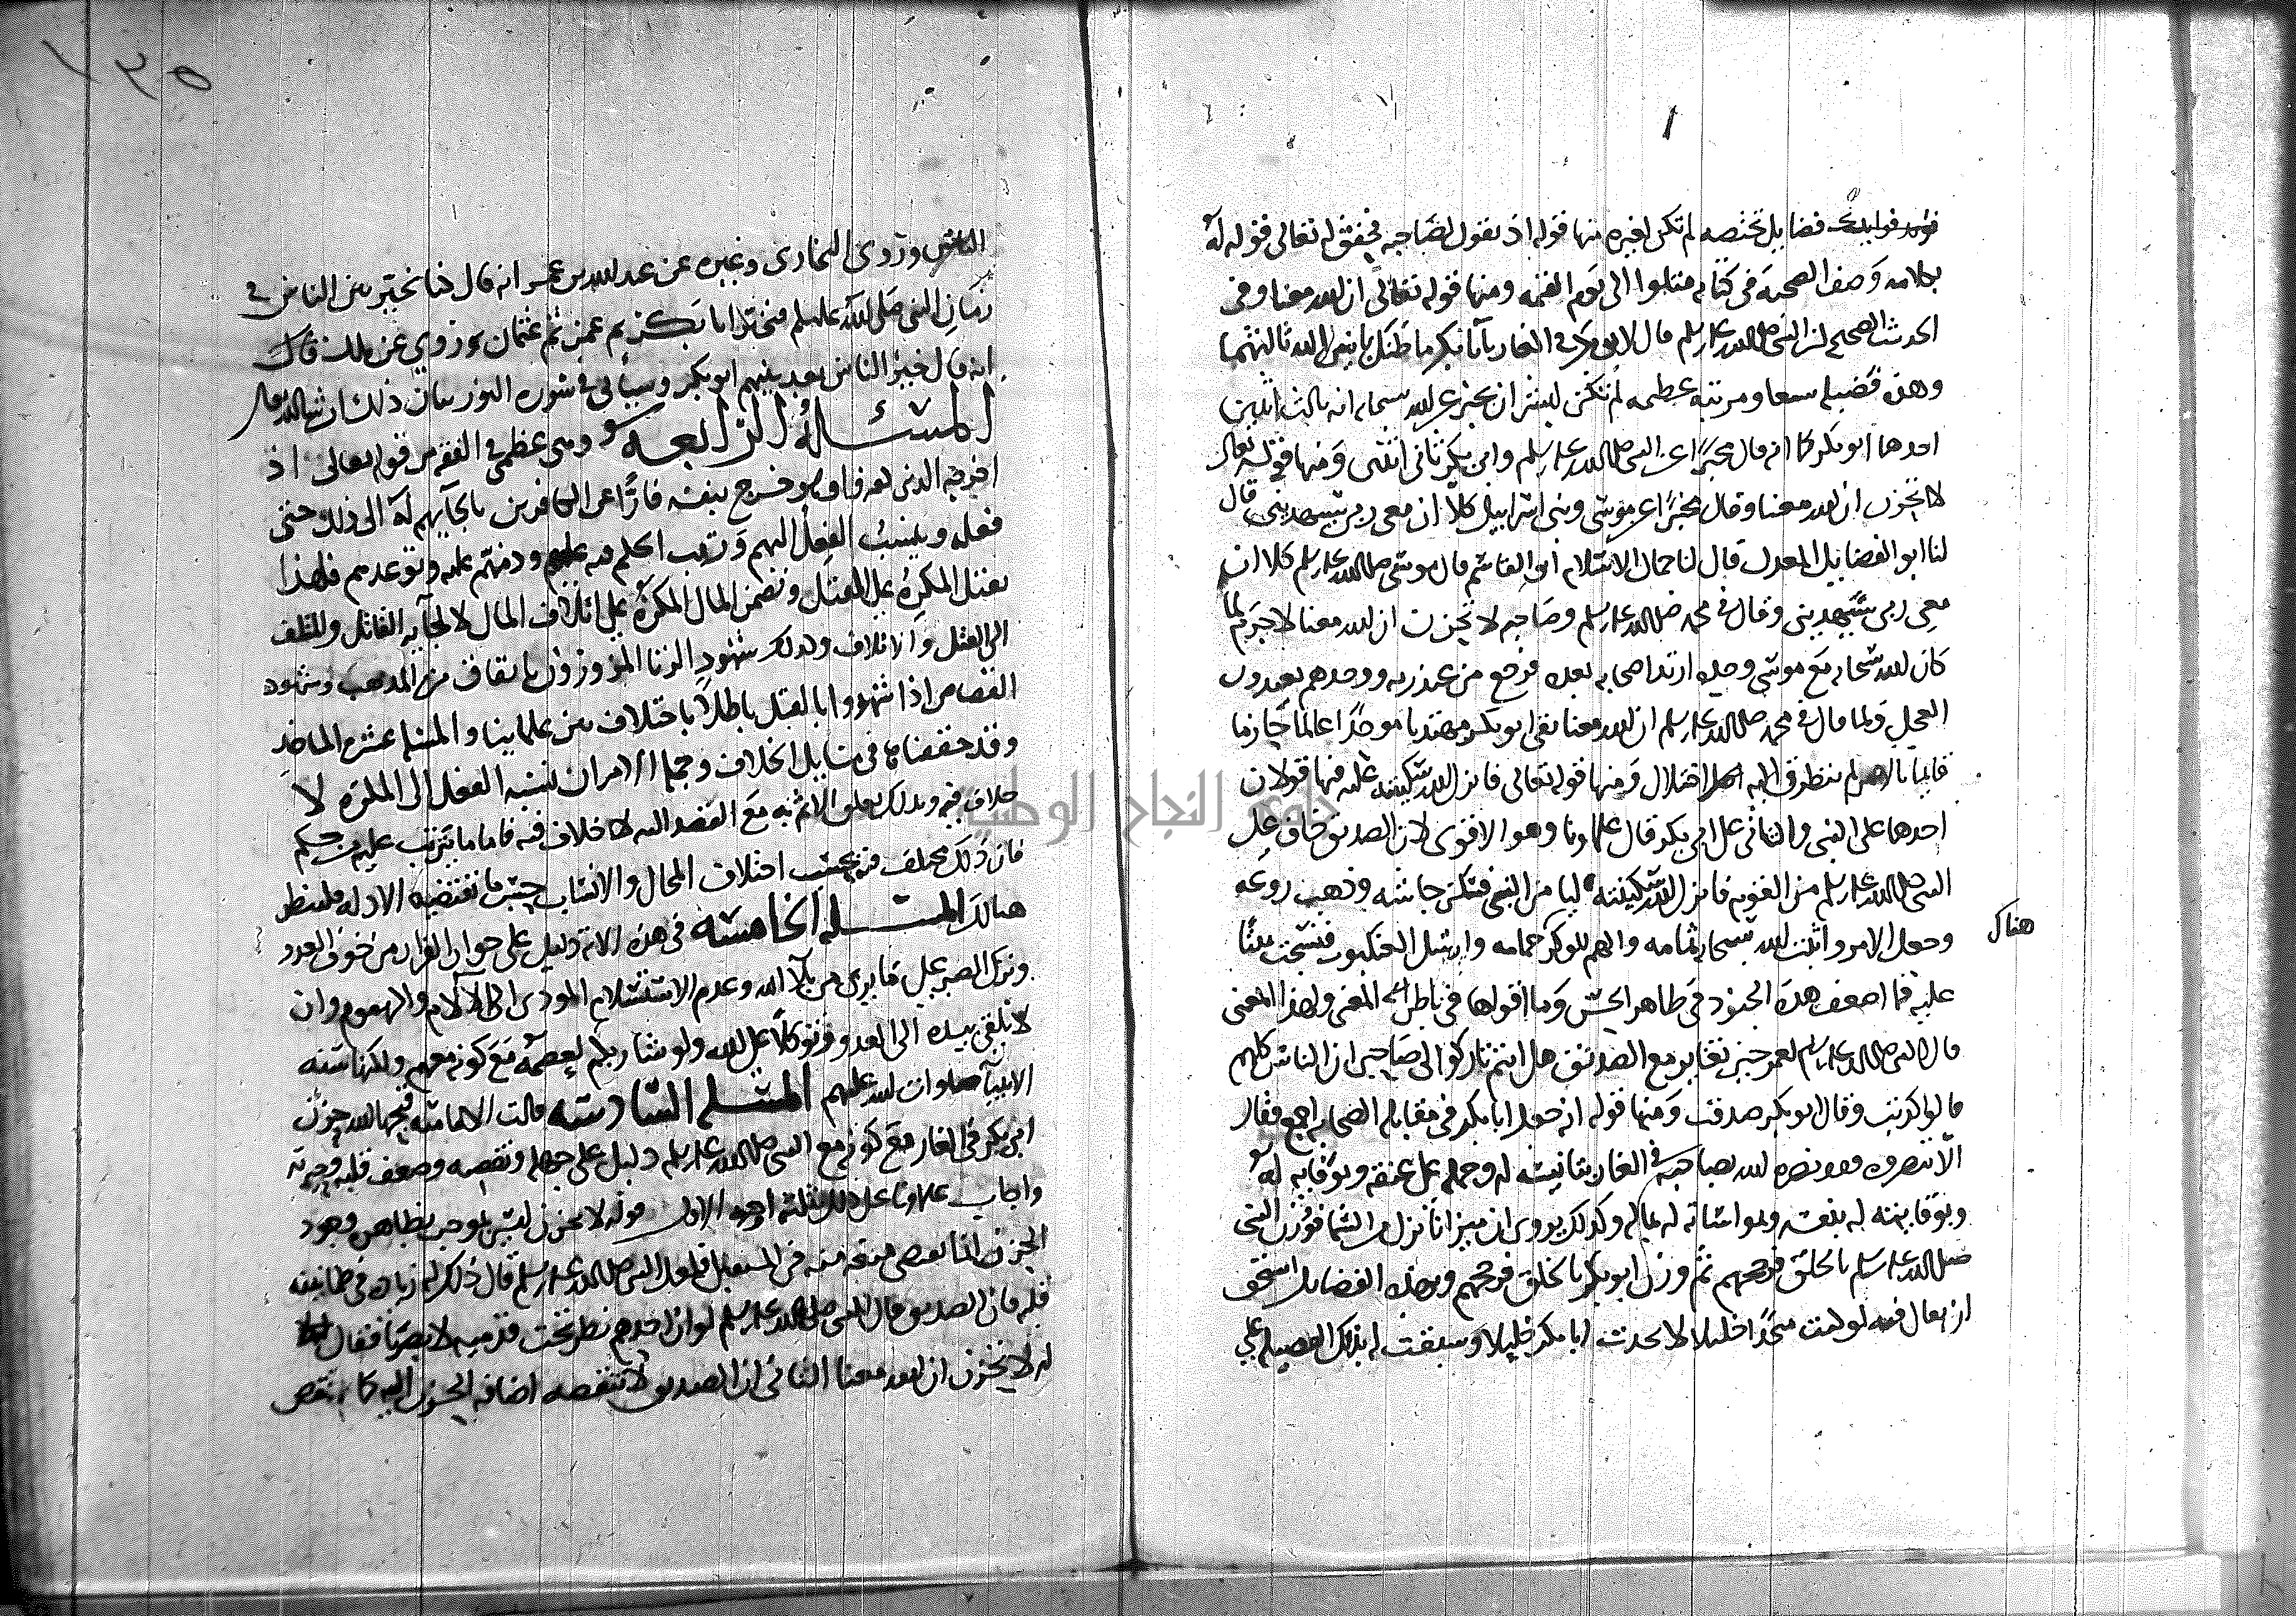 فضايل تختصه لم تكن لغيره منها قوله اذ يقول لصاحبه فحقق له تعالى قوله له
بكلامه وصف الصحبة في كتابه متلوا الى يوم القيمه ومنها قوله تعالى ان الله معنا وفي
الحديث الصحيح ان النبي صلى الله عليه وسلم قال لابي بكر في الغار يا ابا بكر ما ظنك باثنين الله ثالثهما
وهذه مرتبه عظيمه لم تكن لبشر ان يخبر عن الله سبحانه انه ثالث اثنين
احدهما ابو بكر كما انه قال مخبرا عن النبي صلى الله عليه وسلم وابي بكر ثاني اثنين ومنها قوله تعالى
لا تحزن ان الله معنا وقال مخبرا عن موسى وبني اسرايل كلا ان معي ربي سيهدين قال
لنا ابو الفضايل المعدل قال لنا جمال الاسلام ابو القاسم قال موسى صلى الله عليه وسلم كلا ان
معي ربي سيهدين وقال في محمد صلى الله عليه وسلم وصاحبه لا تحزن ان الله معنا لا جرم لما
كان الله سبحانه مع موسى وحده ارتد اصحابه بعده فرجع من عند ربه ووجدهم يعبدون
العجل ولما قال في محمد صلى الله عليه وسلم ان الله معنا بقي ابو بكر مهتديا موحدا عالما جازما
قايما بالامر لم يتطرق اليه اختلال ومنها قوله تعالى فانزل الله سكينته عليه فيها قولان
احدهما على النبي والثاني على ابي بكر قال علماونا وهو الاقوى لان الصديق خاف على
النبي صلى الله عليه وسلم من القوم فانزل الله سكينته ليامن النبي فسكن جاشه وذهب روعه
هناك
وحصل الامر وانبت الله سبحانه ثمامه والهم الوكر حمامه وارسل العنكبوت فنسجت بيتا
عليه فما اضعف هذه الجنود في ظاهر الحس وما اقواها في باطن المعنى ولهذا المعنى
قال النبي صلى الله عليه وسلم لعمر حين تغامر مع الصديق هل انتم تاركوا لي صاحبي ان الناس كلهم
قالوا كذبت وقال ابو بكر صدقت ومنها قوله انه جعل ابا بكر في مقابله الصحابه اجمع فقال
الا تنصروه فقد نصره الله بصاحبه في الغار بتانيسه له وحمله على عنقه وبوفايه له
وبوقايته له بنفسه وبمواساته له بماله وكذلك يروى ان ميزانا نزل من السما فوزن النبي
صلى الله عليه وسلم بالخلق فرجحهم ثم وزن ابو بكر بالخلق فرجحهم وبهذه الفضايل استحق
ان يقال فيه لو كنت متخذا خليلا لاتخذت ابا بكر خليلا وسبقت له بذلك الفضيله على
١٢٥
الناس وروى البخاري وغيره عن عبد الله بن عمر انه قال كنا نخير بين الناس في
زمان النبي صلى الله عليه وسلم فنخير ابا بكر ثم عمر ثم عثمان وروي عن مالك قال
انه قال خير الناس بعد نبيهم ابو بكر وسياتي في سوره النور بيان ذلك ان شا الله تعالى
المسئله الرابعه وهي عظمى في الفقه قوله تعالى اذ
اخرجه الذين كفروا وهو خرج بنفسه فارا عن الكافرين بالجايهم له الى ذلك حتى
فعله وينسب الفعل اليهم ورتب الحكم فيه عليهم وذمهم عليه وتوعدهم فلهذا
يقتل المكره على القتل ونضمن المال المكره على اتلاف المال لالجايه القاتل والمتلف
الى القتل والاتلاف وكذلك شهود الزنا المزورون باتفاق من المذهب وشهود
القصاص اذا شهدوا بالقتل باطلا باختلاف بين علماينا والمسله عشره الماخذ
وقد حققناها في مسايل الخلاف وجمله الامر ان نسبه الفعل الى المكره لا
خلاف فيه وكذلك تعلق الاثم به مع القصد اليه لا خلاف فيه فاما ما يترتب عليه من حكم
فان ذلك مختلف فيه بحسب اختلاف المحال والاسباب حسب ما تقتضيه الادله فلينظر
هنالك المسله الخامسه في هذه الايه دليل على جواز الفرار من خوف العدو
وترك الصبر على ما ينزل من بلا الله وعدم الاستسلام المودي الى الالام والهموم وان
لا يلقي بيده الى العدو توكلا على الله ولو شا ربكم لعصمه مع كونه معهم ولكنها سنه
الانبيا صلوات الله عليهم المسله السادسه قالت الاماميه قبحها الله حزن
ابي بكر في الغار مع كونه مع النبي صلى الله عليه وسلم دليل على جهله ونقصه وضعف قلبه وحيرته
واجاب علماونا على ذلك بثلثه اوجه الاول قوله لا تحزن ليس بموجب بظاهره وجود
الحزن انما يقتضي منعه منه في المستقبل فلعل النبي صلى الله عليه وسلم قال ذلك له زياده في طمانينه
قلبه فان الصديق قال للنبي صلى الله عليه وسلم لو ان احدهم نظر تحت قدميه لابصرنا فقال
له لا تحزن ان الله معنا الثاني ان الصديق لا تنقصه اضافه الحزن اليه كما لم تنقص
جامعة النجاح الوطنية